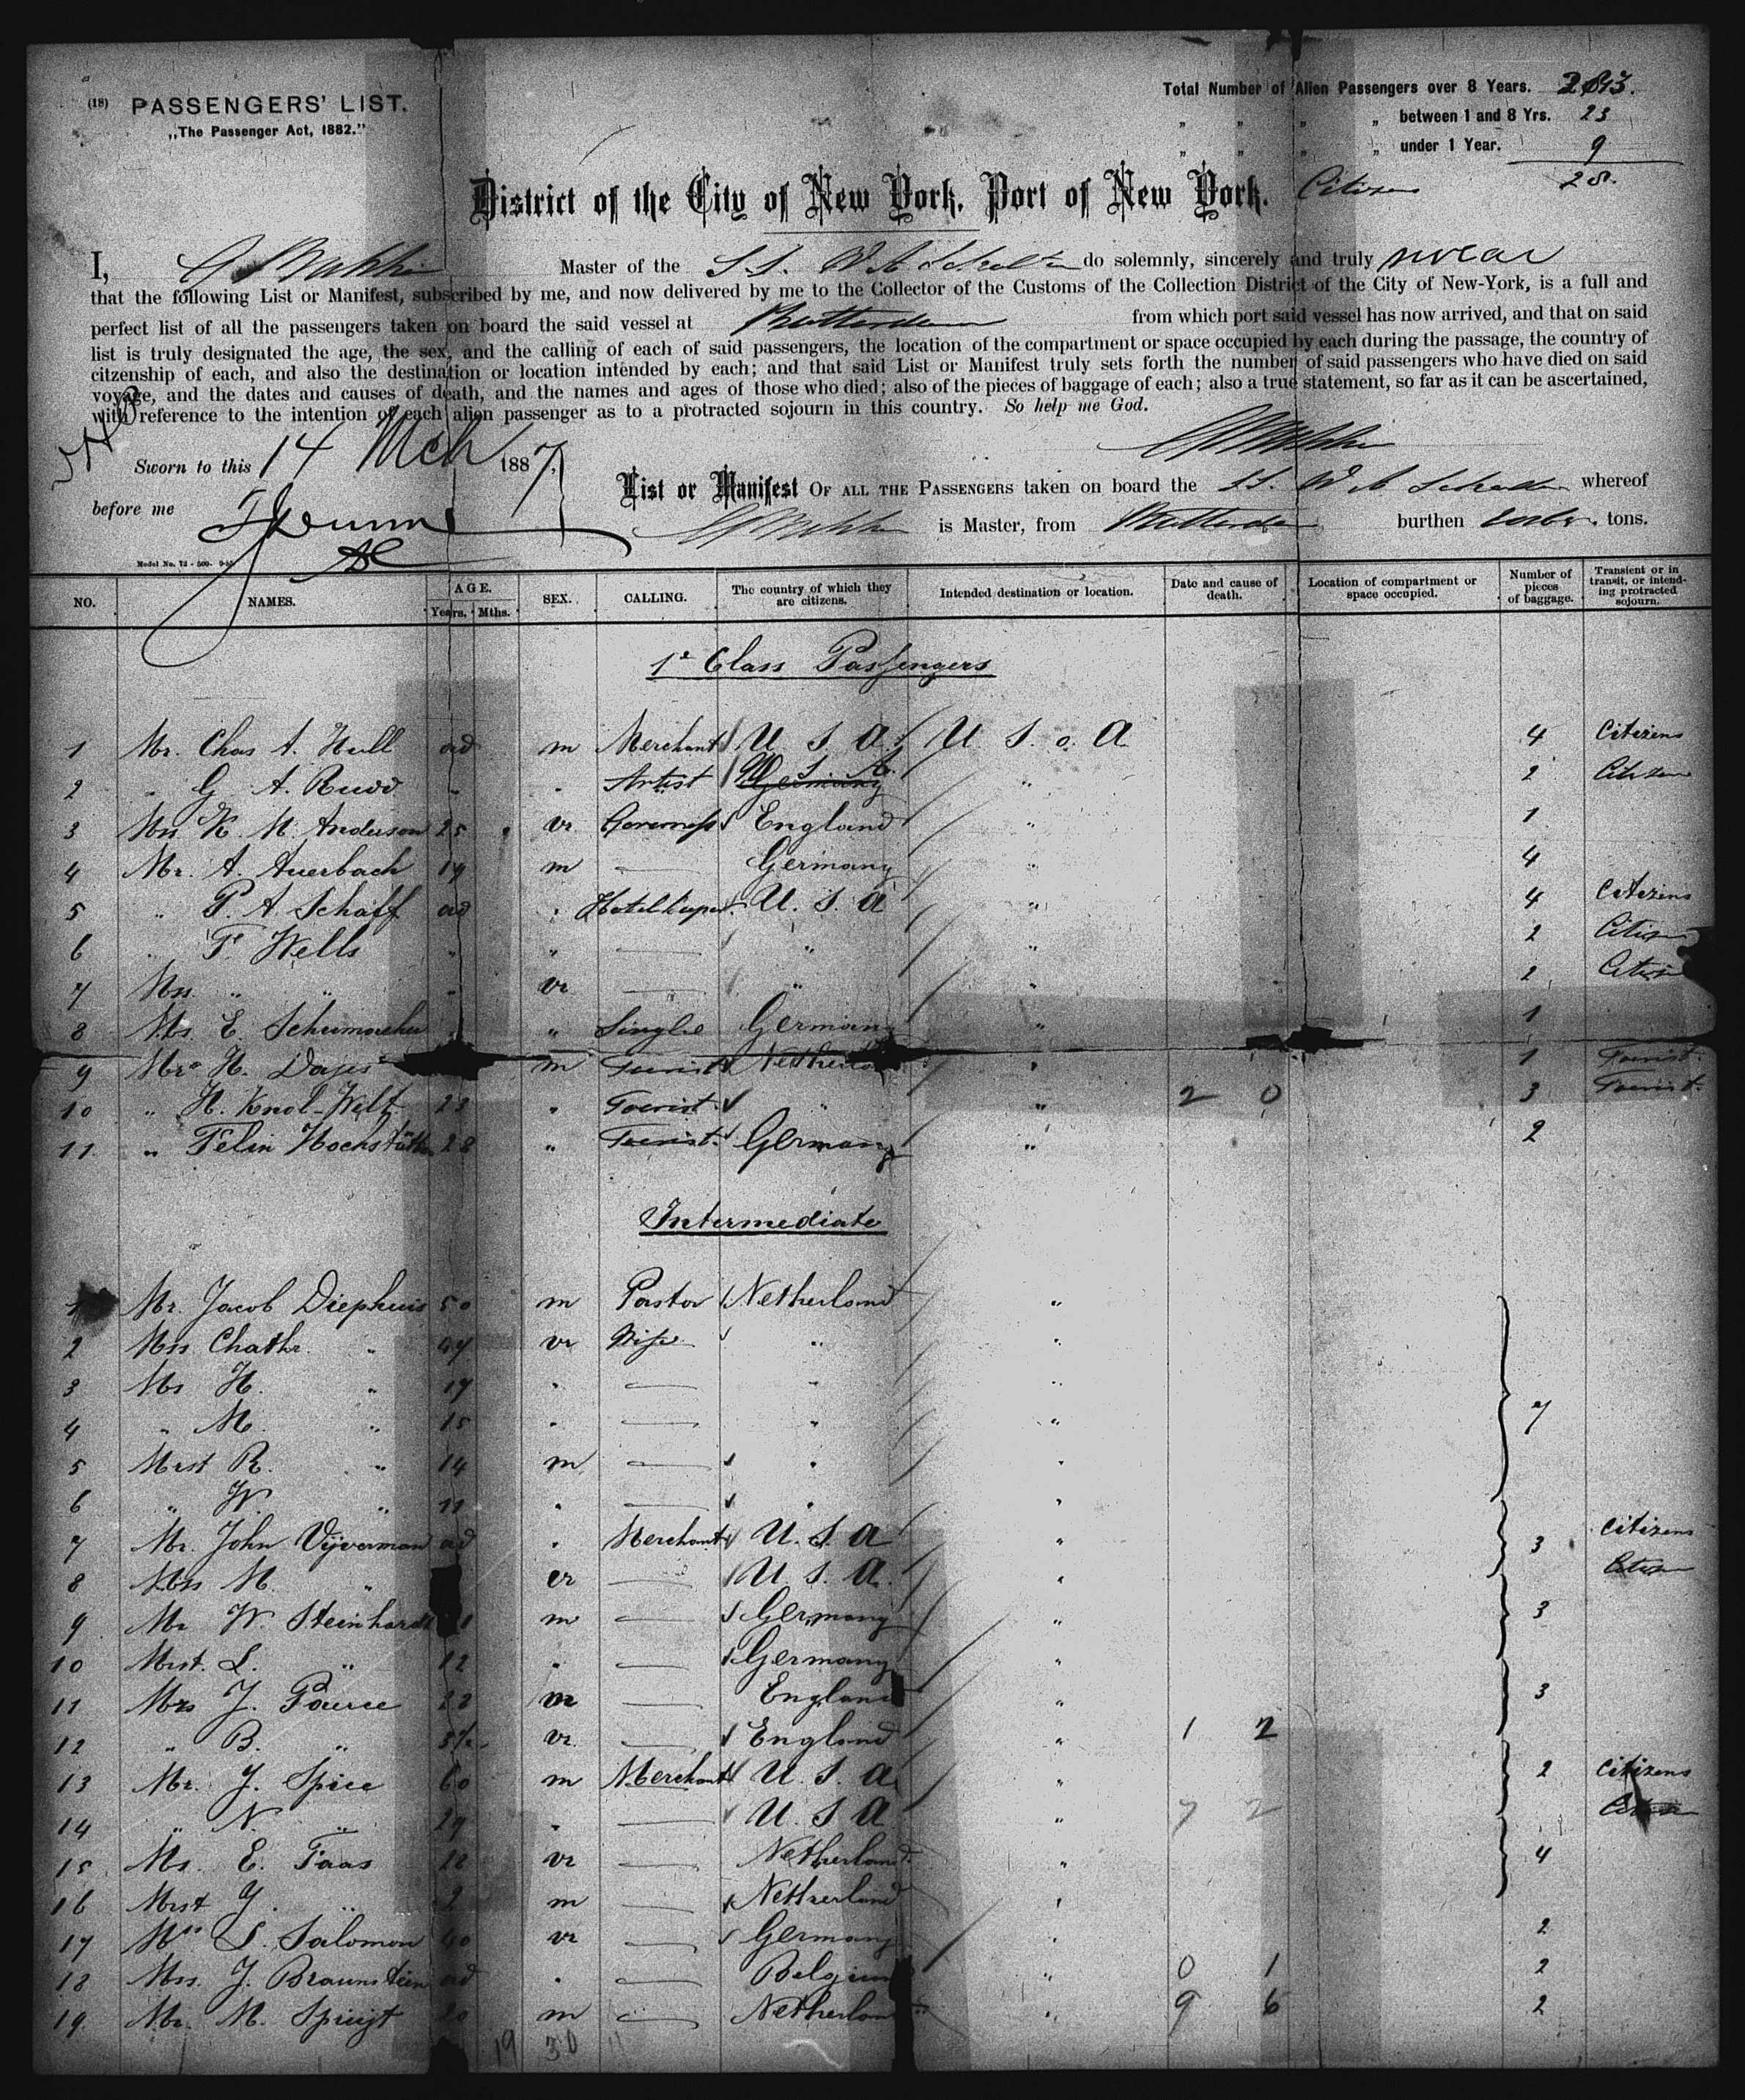 (18) PASSENGERS' LIST.
„The Passenger Act, 1882."
Total Number of Alien Passengers over 8 Years.
„ „ „ „ between 1 and 8 Yrs. 23
„ „ „ „ under 1 Year. 9
District of the City of New York, Port of New York. Citizens 20.
I, Master of the S.S. W. A. Scholten do solemnly, sincerely and truly swear
that the following List or Manifest, subscribed by me, and now delivered by me to the Collector of the Customs of the Collection District of the City of New-York, is a full and
perfect list of all the passengers taken on board the said vessel at Rotterdam from which port said vessel has now arrived, and that on said
list is truly designated the age, the sex, and the calling of each of said passengers, the location of the compartment or space occupied by each during the passage, the country of
citzenship of each, and also the destination or location intended by each; and that said List or Manifest truly sets forth the number of said passengers who have died on said
voyage, and the dates and causes of death, and the names and ages of those who died; also of the pieces of baggage of each; also a true statement, so far as it can be ascertained,
with reference to the intention of each alien passenger as to a protracted sojourn in this country. So help me God.
Sworn to this 14 Mch 1887,
before me
List or Manifest OF ALL THE PASSENGERS taken on board the S.S. W A Scholten whereof
is Master, from Rotterdam burthen tons.
Model No. 12 - 500-
NO. NAMES. AGE. Years. Mths. SEX. CALLING. The country of which they are citizens. Intended destination or location. Date and cause of death. Location of compartment or space occupied. Number of pieces of baggage. Transient or in transit, or intending protracted sojourn.
1e Class Passengers
1 Mr. Chas A. Hull ad m Merchant U. S. A. U. S. o. A 4 Citizens
2 „ G A. Rudd „ „ Artist U. S. A. Germany „ 2 Citizen
3 Mss K. M. Anderson 25 vr Governess England „ 1
4 Mr. A. Auerbach 19 m — Germany „ 4
5 „ P. A. Schaff ad „ Hotelkeeper U. S. A „ 4 Citizens
6 „ F. Wells „ „ — „ „ 2 Citizen
7 Mss „ „ „ vr — „ „ 2 Citizen
8 Ms. E. Schumacher „ „ Single Germany „ 1
9 Mr. H. m Tourist Netherland „ 1 Tourist.
10 „ H. Knol-Welt 23 „ Tourist „ „ 2 0 3 Tourist.
11. „ Felix 28 „ Tourist. Germany „ 2
Intermediate
1 Mr. Jacob Diephuis 50 m Pastor Netherland „
2 Mss Chathr. „ 47 vr Wife „ „
3 Ms H. „ 17 „ — „ „
4 „ M. „ 15 „ — „ „ 7
5 Mast R. „ 14 m — „ „
6 „ W. „ 11 „ — „ „
7 Mr. John Vijverman ad „ Merchant U. S. A „ 3 Citizens
8 Mss M. „ vr — U. S. A. „ Citizen
9 Mr W. Steinhardt m — Germany „ 3
10 Mast. L. „ 12 „ — Germany „
11 Mrs J. Pierce 22 m — England „ 3
12 „ B. „ vr. — England „ 1 2
13 Mr. J. Spice 60 m Merchant U. S. A. „ 2 Citizens
14 „ N. „ 29 „ — U. S. A „ 7 2 Citizen
15 Ms. E. Faas 28 vr — Netherland. „ 4
16 Mast J. „ 2 m — Netherland „
17 S. Salomon 40 vr — Germany „ 2
18 Mss. J. Braunstein ad „ — Belgium „ 0 1 2
19. Mr. M. Spruijt 20 m — Netherland „ 9 6 2
19 30 11